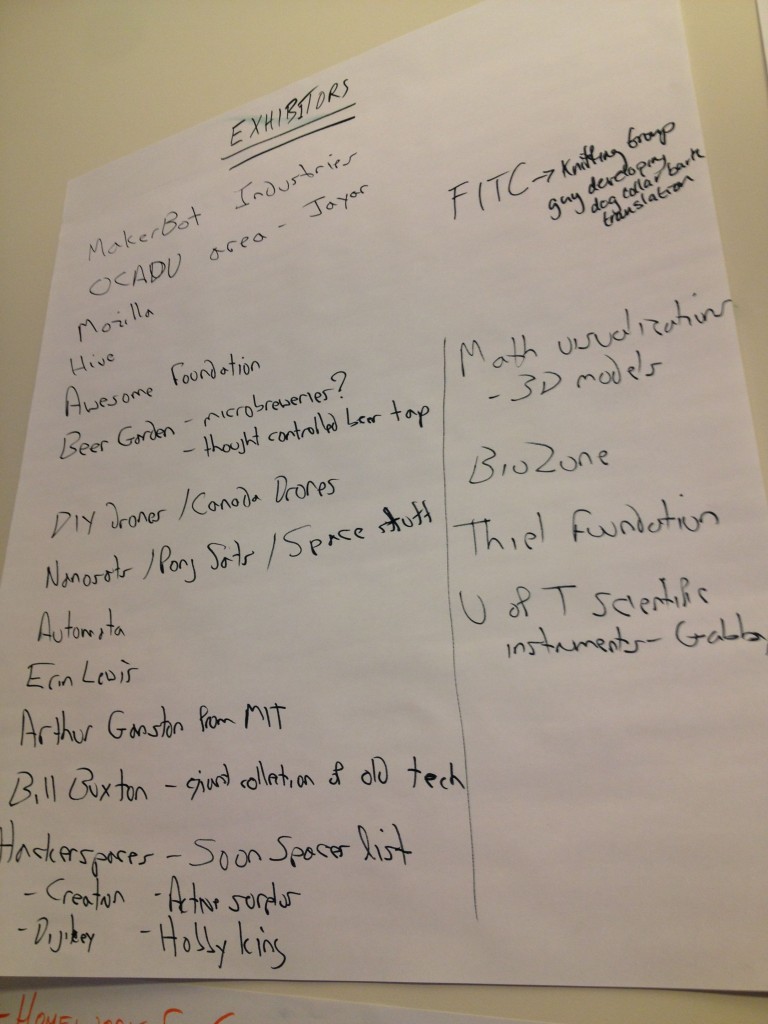 EXHIBITORS
MakerBot Industries
OCADU area - Jayar
Mozilla
Hive
Awesome Foundation
Beer Garden - microbreweries?
- thought controlled beer tap
DIY drones / Canada Drones
Nanosats / Pong Sats / Space stuff
Automata
Erin Lewis
Arthur Ganston from MIT
Bill Buxton - giant collection of old tech
Hackerspaces - Soon Spacer list
- Creatron - Active surplus
- Digikey - Hobby king
FITC → Knitting Group
guy developing
dog collar bark
translation
Math visualizations
- 3D models
BioZone
Thiel Foundation
U of T scientific
instruments - Gabby